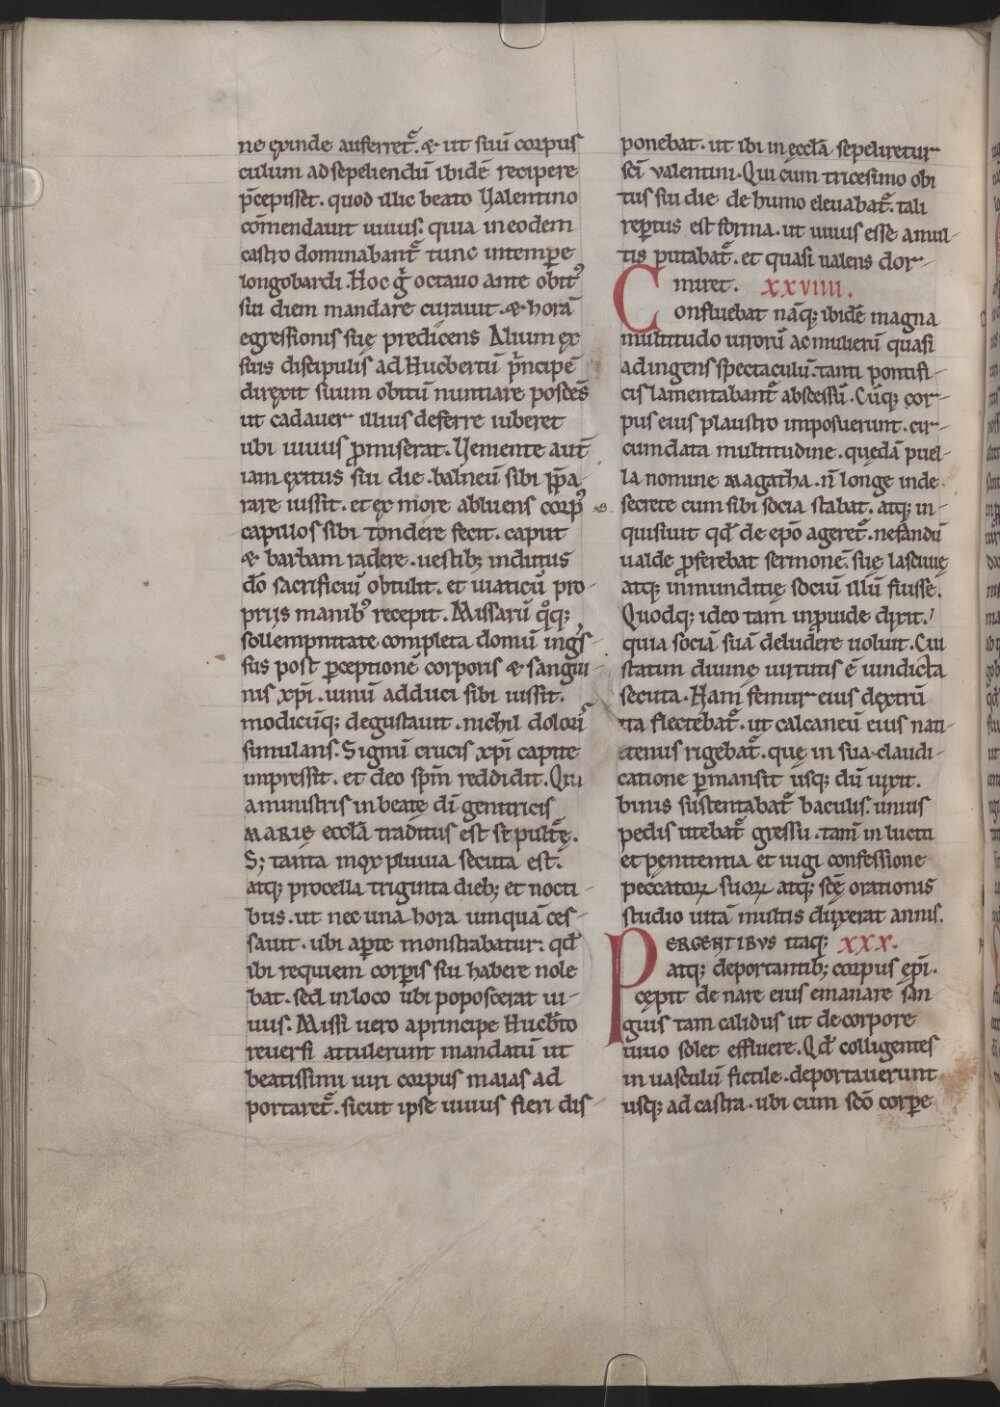 ne exinde auferret᷑. & ut suū corpus
culum ad sepeliendū ibidē recipere
p̄cepisset. quod illic beato Valentino
cōmendauit uiuus: quia in eodem
castro dominabant᷑ tunc intemp̱e
longobardi. Hoc g̊ octauo ante obitꝰ
sui diem mandare curauit. & horā
egressionis suę predicens Alium ex
suis discipulis ad Hucbertū p̄ncipē
direxit suum obitū nuntiare poscēs
ut cadauer illius deferre iuberet
ubi uiuus ꝓmiserat. Veniente aut̄
iam exitus sui die. balneū sibi p̄pa
rare iussit. et ex more abluens corpꝰ
capillos sibi tondere fecit. caput
& barbam radere. uestib; indutus
dō sacrificiū obtulit. et uiaticū pro-
prijs manibꝰ recepit. Missarū q̊q;
sollempnitate completa domū ingˢ
sus post ꝑceptionē corporis & sangui-
nis xp̄i. uinū adduci sibi iussit.
modicūq; degustauit. nichil doloriˢ
simulans. Signū crucis xp̄i capite
impressit. et deo sp̄m reddidit. Qui
a ministris in beatę dī genitricis
MARIĘ eccłā traditus est sepultę.
S; tanta mox pluuia secuta est.
atq; procella triginta dieb; et nocti-
bus. ut nec una hora umquā ces-
sauit. ubi aꝑte monstrabatur: qđ
ibi requiem corꝑis sui habere nole
bat. sed in loco ubi poposcerat ui-
uus. Missi uero a principe Hucb̄to
reuersi attulerunt mandatū ut
beatissimi uiri corpus maias ad
portaret᷑. sicut ipse uiuus fieri dis-
ponebat. ut ibi in ęccłā sepeliretur
sc̄i valentini. Qui cum tricesimo obi
tus sui die de humo eleuabat᷑. tali
reꝑtus est forma. ut uiuus esse a mul-
tis putabat᷑. et quasi ualens dor-
miret. XXVIIII.
Confluebat nāq; ibidē magna
multitudo uirorū ac mulierū quasi
ad ingens spectaculū. tanti pontifi-
cis lamentabant᷑ abscessū. Cūq; cor-
pus eius plaustro imposuerunt. cir-
cumdata multitudine. quedā puel-
la nomine Magatha. n̄ longe inde
secrete cum sibi socia stabat. atq; in-
quisiuit qđ de ep̄o ageret᷑. nefandū
ualde ꝓferebat sermonē. suę lasciuię
atq; inmunditię sociū illū fuisse.
Quodq; ideo tam inpuide dixit.
quia sociā suā deludere uoluit. Cui
statim diuinę uirtutis ē uindicta
secuta. Nam femur eius dextrū
ita flectebat᷑. ut calcaneū eius nati-
tenus rigebat᷑. que in sua claudi-
catione ꝑmansit usq; dū uixit.
binis sustentabat᷑ baculis. unius
pedis utebat᷑ gressu. tam̄ in luctu
et penitentia et iugi confessione
peccatoꝝ suoꝝ atq; sc̄ę orationis
studio uitā multis duxerat annis.
PERGENTIBVS itaq; XXX.
atq; deportantib; corpus ep̄i.
cepit de nare eius emanare san
guis tam calidus ut de corpore
uiuo solet effluere. Qđ colligentes
in uasculū fictile. deportauerunt
usq; ad castra. ubi cum sc̄o corꝑe